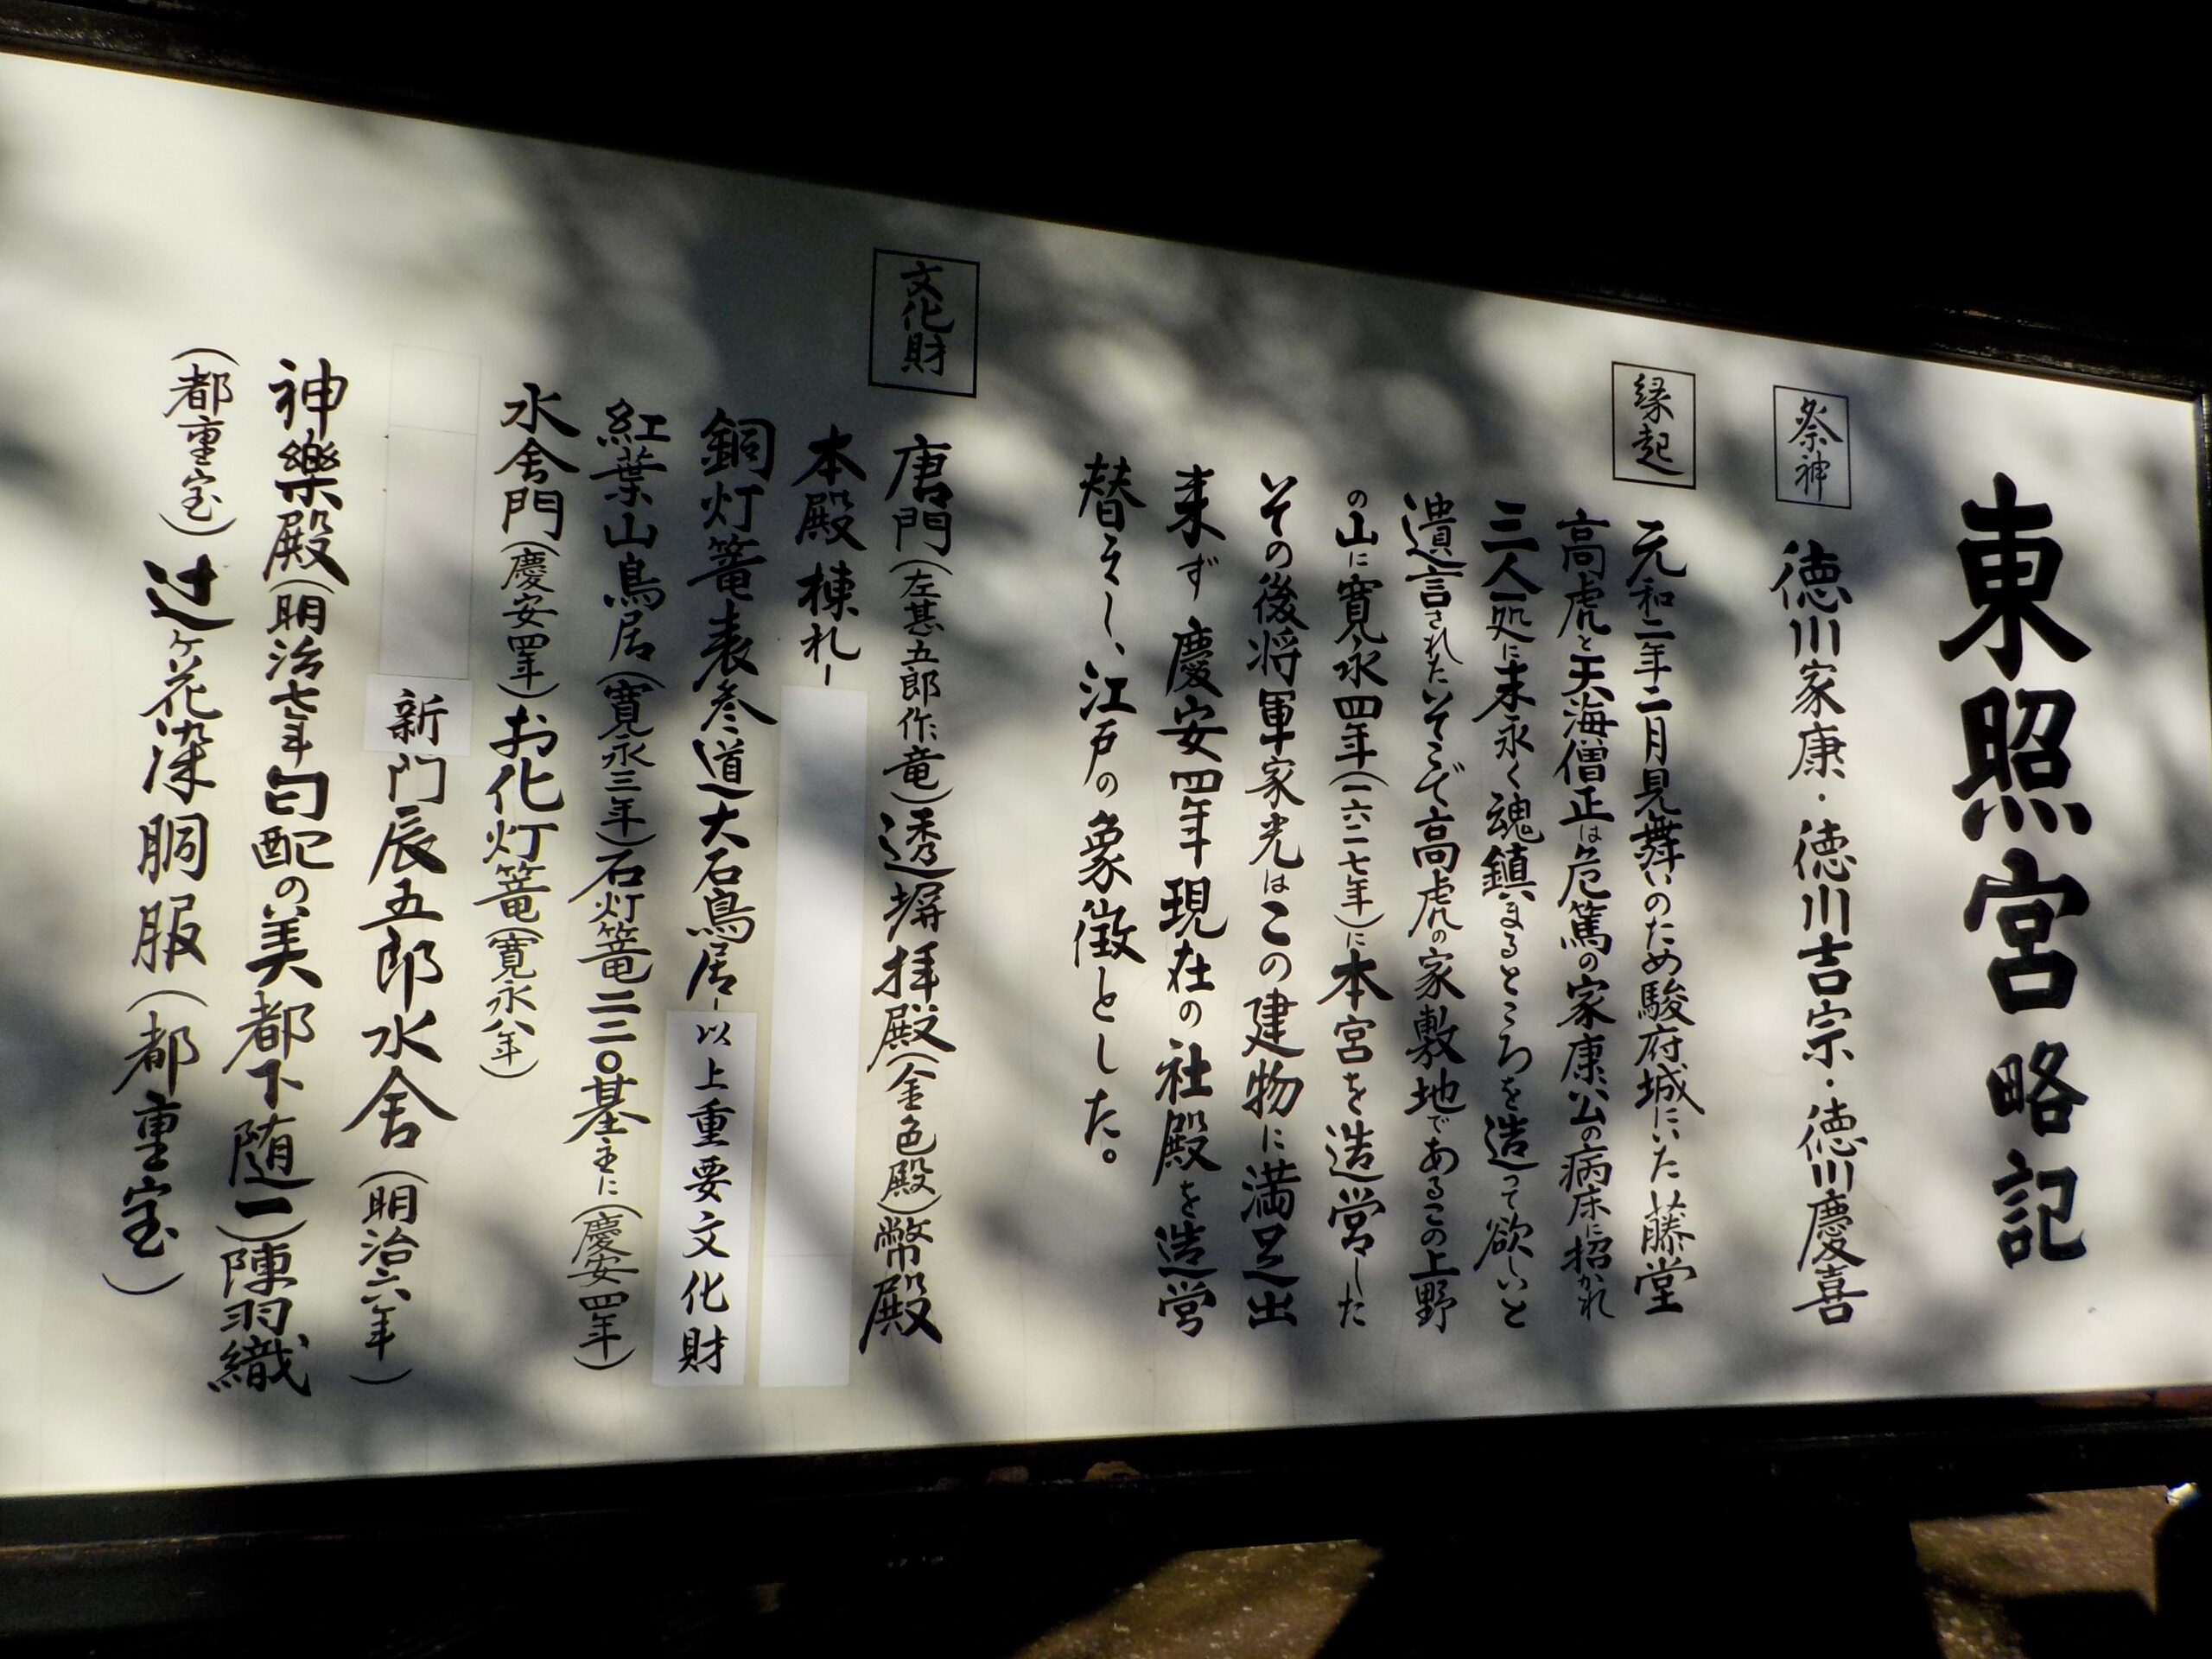 東照宮略記
祭神
徳川家康・徳川吉宗・徳川慶喜
縁起
元和二年二月見舞いのため駿府城にいた藤堂
高虎と天海僧正は危篤の家康公の病床に招かれ
三人一処に末永く魂鎮まるところを造って欲しいと
遺言されたそこで高虎の家敷地であるこの上野
の山に寛永四年(一六二七年)に本宮を造営した
その後将軍家光はこの建物に満足出
来ず慶安四年現在の社殿を造営
替えし、江戸の象徴とした。
文化財
唐門(左甚五郎作竜)透塀拝殿(金色殿)幣殿
本殿棟札ー
銅灯篭表参道大石鳥居ー以上重要文化財
紅葉山鳥居(寛永三年)石灯篭二二〇基主に(慶安四年)
水舎門(慶安四年)お化灯篭(寛永八年)
新門辰五郎水舎(明治六年)
神樂殿(明治七年勾配の美都下随一)陣羽織
(都重宝)辻ヶ花染胴服(都重宝)